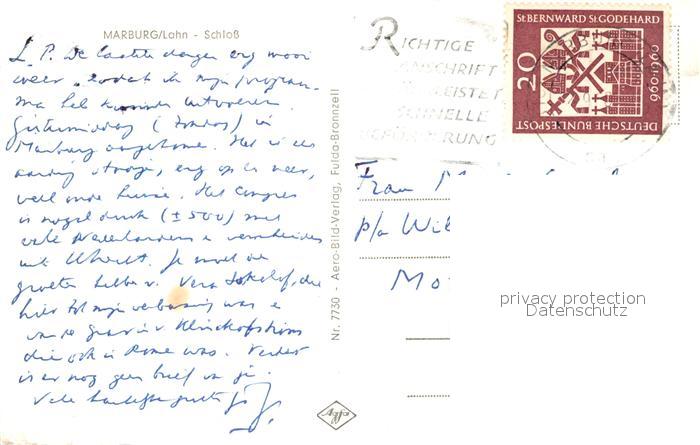 MARBURG/Lahn - Schloß
L. P. De laatste dagen erg mooi
weer, zodat ik mijn program-
ma heb kunnen uitvoeren.
Gistermiddag (zondag) in
Marburg aangekomen. Het is een
aardig stadje, erg op en neer,
veel oude huizen. Het congres
is nogal druk (± 500) met
vele Nederlanders
uit Utrecht. Je moet de
groeten hebben v. Vera
hier tot mijn verbazing was
die ook in Rome was. Verder
is er nog geen brief van je.
Vele hartelijke groeten
Nr. 7730 - Aero-Bild-Verlag, Fulda-Bronnzell
Agfa
RICHTIGE
ANSCHRIFT
LEISTET
SCHNELLE
BEFÖRDERUNG
ST.BERNWARD ST.GODEHARD
960-1960
20
DEUTSCHE BUNDESPOST
Frau
p/a Wil
Mo
privacy protection
Datenschutz